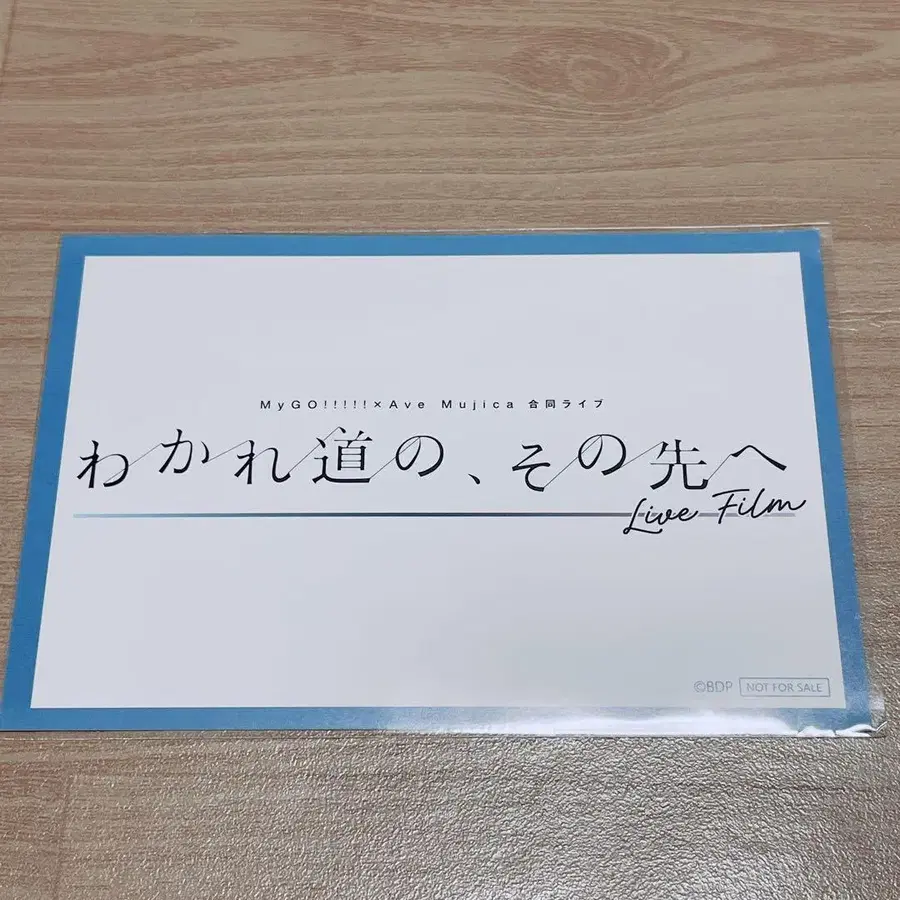 MyGO!!!!!×Ave Mujica 合同ライブ
わかれ道の、その先へ
Live Film
©BDP NOT FOR SALE